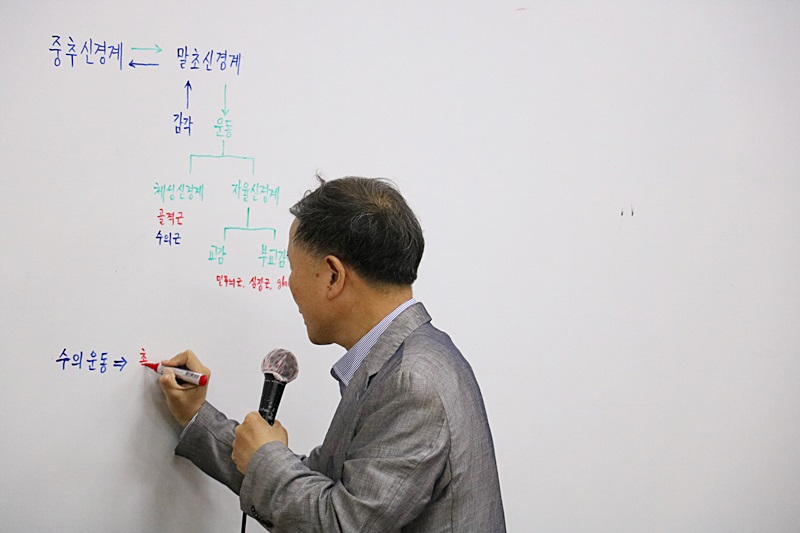 중추신경계 ⇄ 말초신경계
감각 운동
체성신경계 자율신경계
골격근
수의근
교감 부교감
민무늬근, 심장근,
수의운동 ⇒ 초